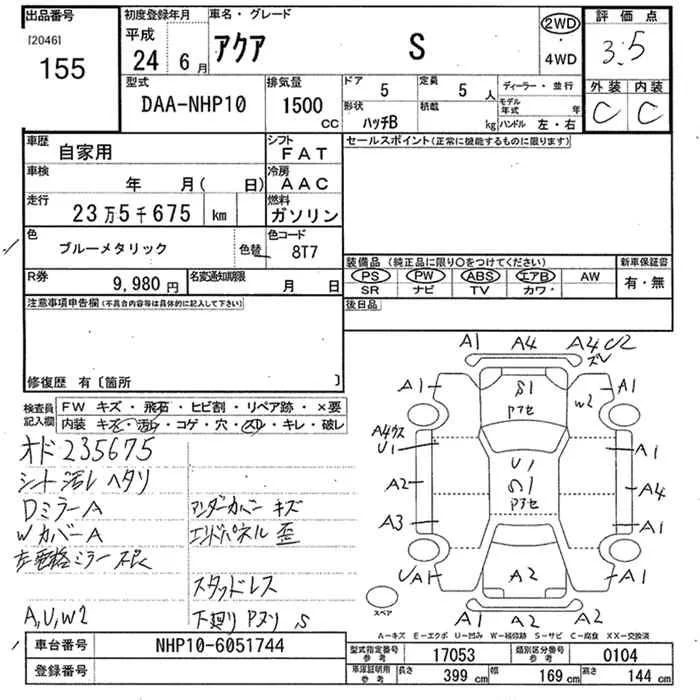 出品番号 初度登録年月 車名・グレード 2WD 評価点
[2046] 平成 アクア S ・ 3.5
155 24 6月 4WD
型式 排気量 ドア 5 定員 5人 ディーラー・並行 外装 内装
DAA-NHP10 1500cc 形状 ハッチB 積載 kg モデル年式 年 C C
ハンドル 左・右
車歴 自家用 シフト FAT セールスポイント(正常に機能するものに限ります)
車検 年 月( 日) 冷房 AAC
走行 23万5千675 km 燃料 ガソリン
色 ブルーメタリック 色替 色コード 8T7
装備品 (純正品に限り○をつけてください) 新車保証書
R券 9,980円 名変通知期限 月 日 PS PW ABS エアB AW 有・無
SR ナビ TV カワ・
注意事項申告欄(不具合内容等は具体的に記入して下さい) 後日品
修復歴 有〔箇所 〕
検査員記入欄 FW キズ・飛石・ヒビ割・リペア跡・×要
内装 キズ・汚れ・コゲ・穴・スレ・キレ・破レ
オド 235675
シート汚レ ヘタリ
Dミラー A アンダーカバー キズ
Wカバー A エンドパネル 歪
左電格ミラー不良
スタッドレス
A,U,W2 下廻り Pヌリ S
A1 A4 A4 U2
ズレ
A1 S1 A1
Pアセ W2
A4ワス
U1 A1
A2 U1 A4
Pアセ
A3 A1
UA1 A2 A1
スペア A1 A2 A2
A-キズ E-エクボ U-凹み W-補修跡 S-サビ C-腐食 XX-交換済
車台番号 NHP10-6051744 型式指定番号 参考 17053 類別区分番号 参考 0104
登録番号 車庫証明用 参考 長さ 399cm 幅 169cm 高さ 144cm